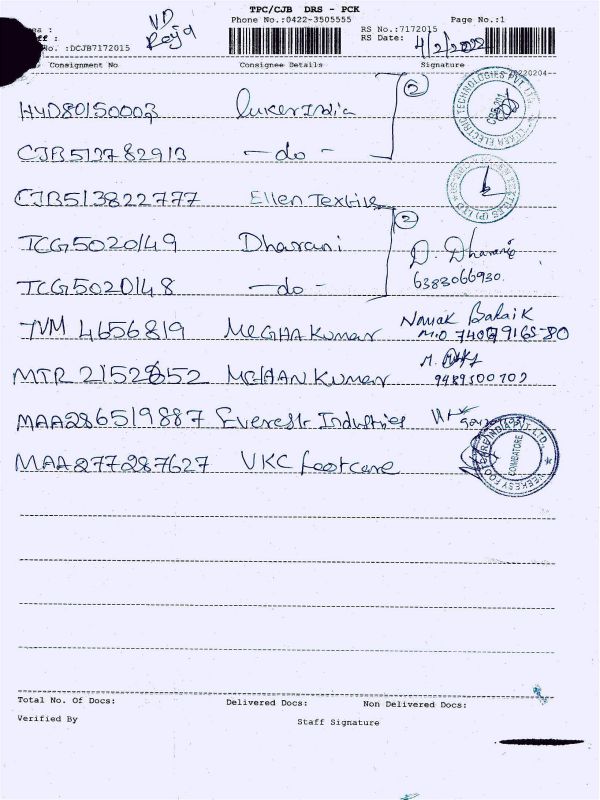 TPC/CJB DRS - PCK
Phone No.:0422-3505555 Page No.:1
VD
Raja
RS No.:7172015
RS Date: 4/2/2022
No. :DCJB7172015
Consignment No Consignee Details Signature
20220204-
HYD80150003 luker India ②
CJB513782913 - do -
CJB513822777 Ellen Textile
TCG5020149 Dharani ② D. Dharani
6383066930
TCG5020148 - do -
TVM 4656819 MEGHA Kumar Nayak Balaik
MTR 2152652 MOHAN Kumar
9489500702
MAA286519887 Everest Industries
MAA277287627 VKC footcare
COIMBATORE
Total No. Of Docs: Delivered Docs: Non Delivered Docs:
Verified By Staff Signature